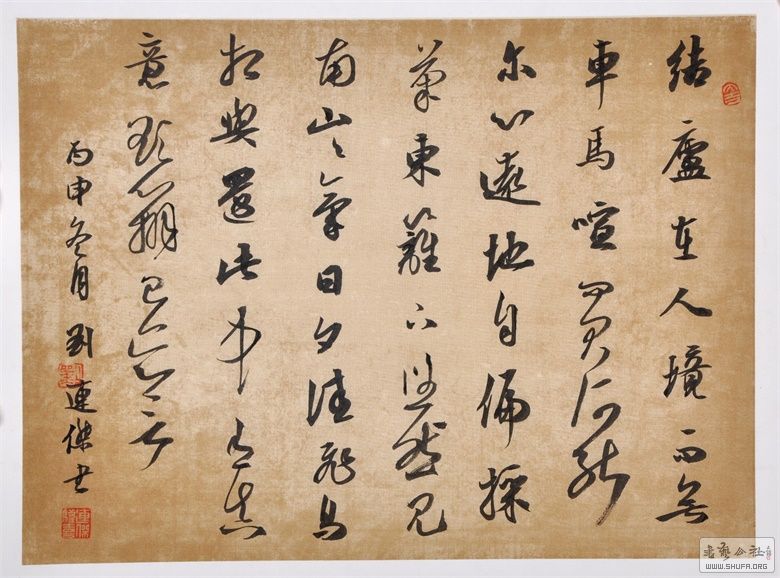 結廬在人境而無
車馬喧問君何能
尔心遠地自偏採
菊東籬下悠然見
南山々氣日夕佳飛鳥
相與還此中有真
意欲辨已忘言
丙申冬月劉連傑書
WWW.SHUFA.ORG